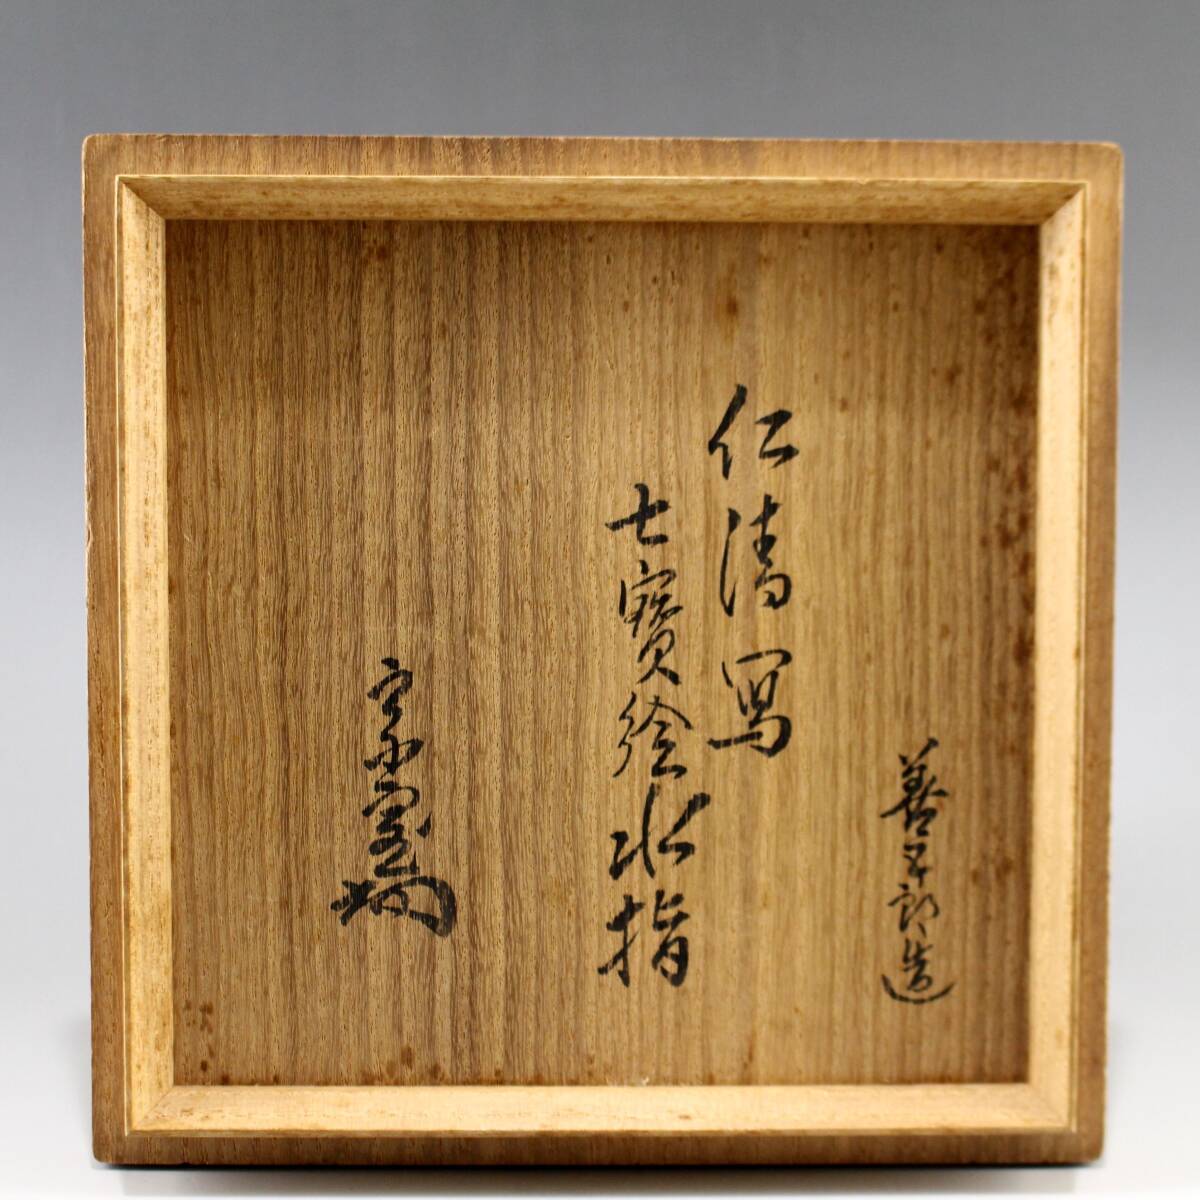 善五郎造
仁清寫
七寳絵水指
宗室